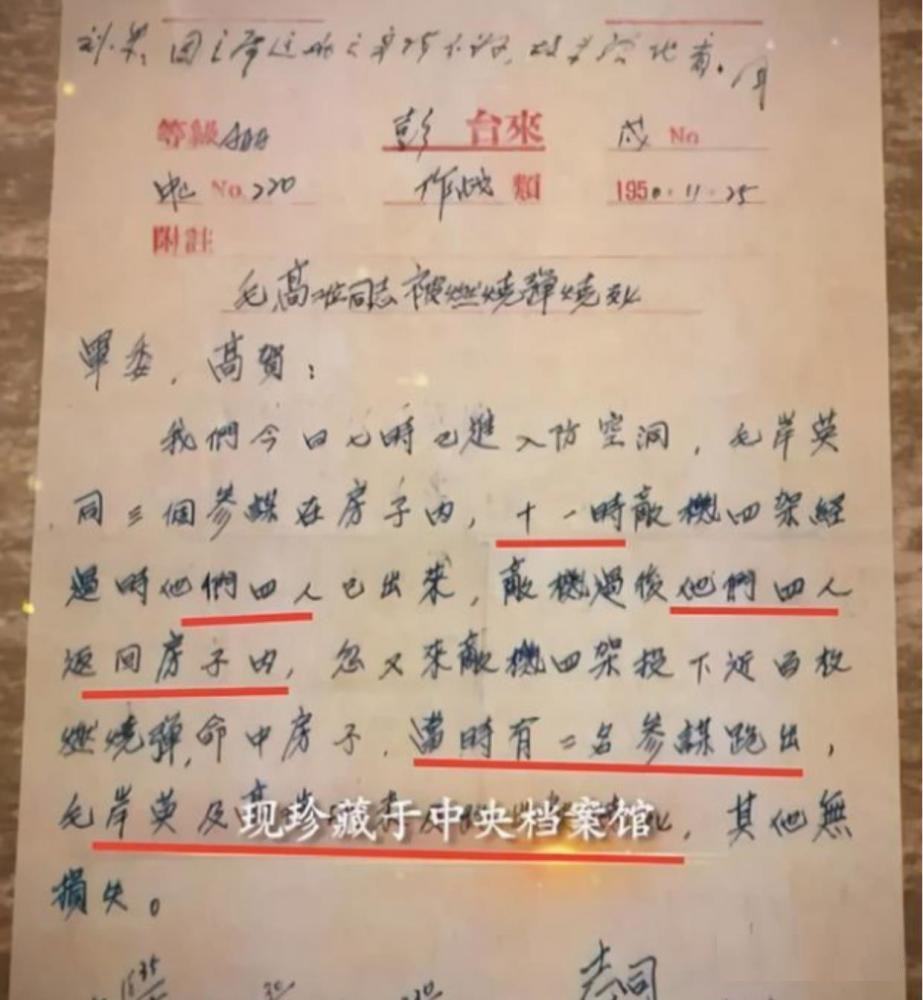 刘、朱:因主席这两天身体不好,故未给他看。周
等級 AAA 彭 台來 No
No. 220 作战 類 1950.11.25
附註
毛高二位同志被燃燒彈燒死
軍委,高賀:
我們今日七時已進入防空洞,毛岸英
同三個參謀在房子内,十一時敵機四架經
過時他們四人已出來,敵機過後他們四人
返回房子内,忽又來敵機四架投下近百枚
燃燒彈,命中房子,當時有二名參謀跑出,
毛岸英及高
现珍藏于中央档案馆
,其他無
損失。
志司